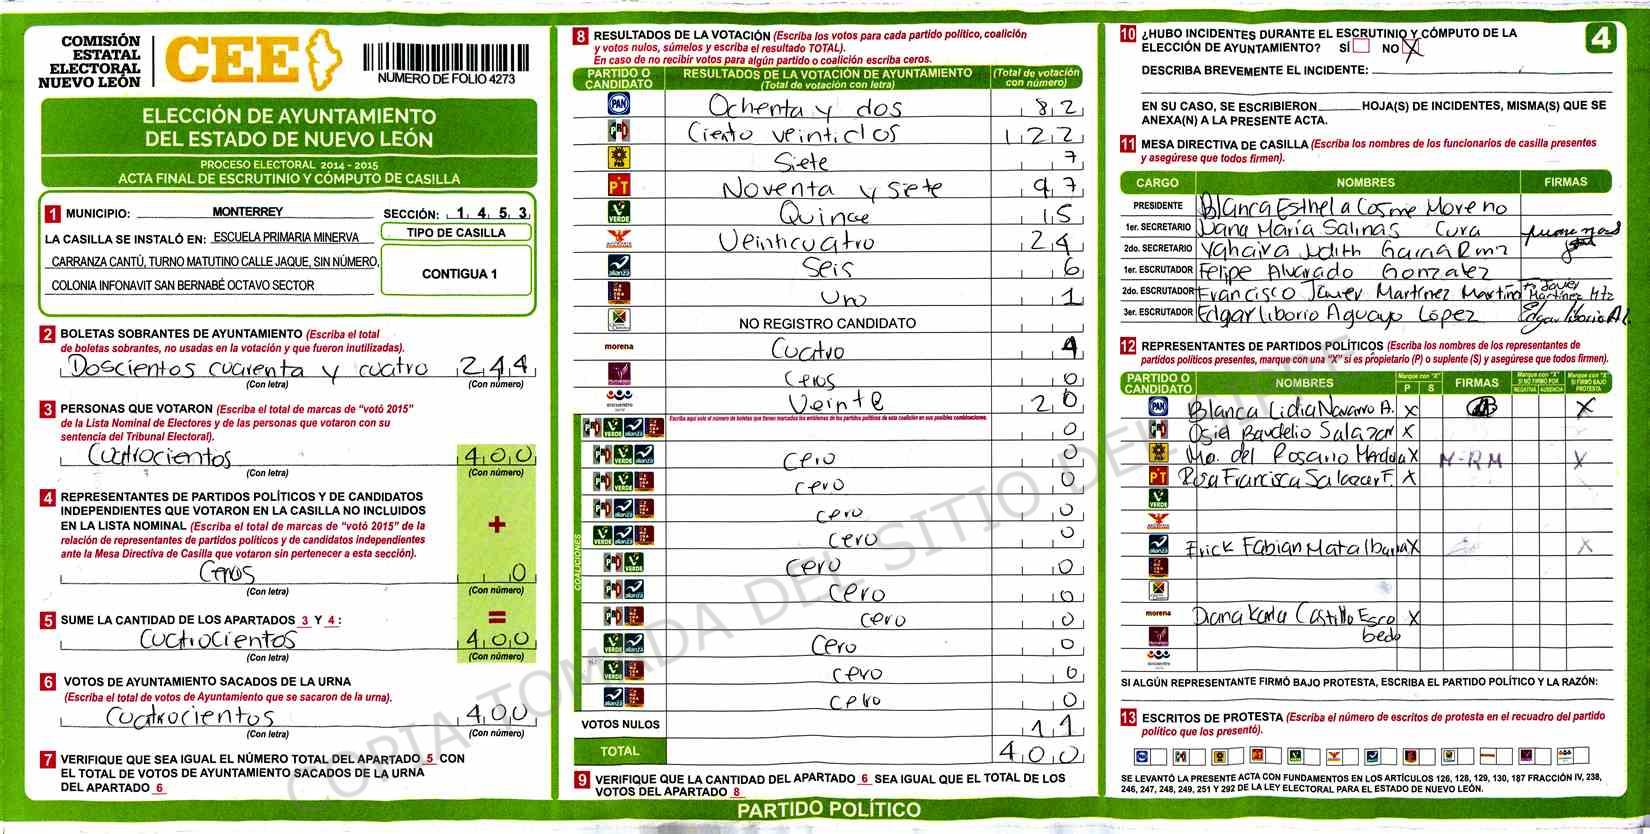 COMISIÓN
ESTATAL
ELECTORAL
NUEVO LEÓN
CEE
NUMERO DE FOLIO 4273
ELECCIÓN DE AYUNTAMIENTO
DEL ESTADO DE NUEVO LEÓN
PROCESO ELECTORAL 2014 - 2015
ACTA FINAL DE ESCRUTINIO Y CÓMPUTO DE CASILLA
1 MUNICIPIO: MONTERREY SECCIÓN: 1 4 5 3
LA CASILLA SE INSTALÓ EN: ESCUELA PRIMARIA MINERVA
CARRANZA CANTÚ, TURNO MATUTINO CALLE JAQUE, SIN NÚMERO,
COLONIA INFONAVIT SAN BERNABÉ OCTAVO SECTOR
TIPO DE CASILLA
CONTIGUA 1
2 BOLETAS SOBRANTES DE AYUNTAMIENTO (Escriba el total
de boletas sobrantes, no usadas en la votación y que fueron inutilizadas).
Doscientos cuarenta y cuatro 2 4 4
(Con letra) (Con número)
3 PERSONAS QUE VOTARON (Escriba el total de marcas de "votó 2015"
de la Lista Nominal de Electores y de las personas que votaron con su
sentencia del Tribunal Electoral).
Cuatrocientos 4 0 0
(Con letra) (Con número)
4 REPRESENTANTES DE PARTIDOS POLÍTICOS Y DE CANDIDATOS
INDEPENDIENTES QUE VOTARON EN LA CASILLA NO INCLUIDOS
EN LA LISTA NOMINAL (Escriba el total de marcas de "votó 2015" de la
relación de representantes de partidos políticos y de candidatos independientes
ante la Mesa Directiva de Casilla que votaron sin pertenecer a esta sección).
+
Ceros 0
(Con letra) (Con número)
=
5 SUME LA CANTIDAD DE LOS APARTADOS 3 Y 4:
Cuatrocientos 4 0 0
(Con letra) (Con número)
6 VOTOS DE AYUNTAMIENTO SACADOS DE LA URNA
(Escriba el total de votos de Ayuntamiento que se sacaron de la urna).
Cuatrocientos 4 0 0
(Con letra) (Con número)
7 VERIFIQUE QUE SEA IGUAL EL NÚMERO TOTAL DEL APARTADO 5 CON
EL TOTAL DE VOTOS DE AYUNTAMIENTO SACADOS DE LA URNA
DEL APARTADO 6
8 RESULTADOS DE LA VOTACIÓN (Escriba los votos para cada partido político, coalición
y votos nulos, súmelos y escriba el resultado TOTAL).
En caso de no recibir votos para algún partido o coalición escriba ceros.
PARTIDO O CANDIDATO RESULTADOS DE LA VOTACIÓN DE AYUNTAMIENTO (Total de votación con letra) (Total de votación con número)
PAN Ochenta y dos 8 2
PRI Ciento veintidos 1 2 2
PRD Siete 7
PT Noventa y siete 9 7
VERDE Quince 1 5
Veinticuatro 2 4
alianza Seis 6
Uno 1
NO REGISTRO CANDIDATO
morena Cuatro 4
Ceros 0
encuentro Veinte 2 0
Escriba aquí solo el número de boletas que tienen marcados los emblemas de los partidos políticos de esta coalición en sus posibles combinaciones.
COALICIONES
0
cero 0
cero 0
cero 0
cero 0
cero 0
cero 0
cero 0
Cero 0
cero 0
cero 0
VOTOS NULOS 1 1
TOTAL 4 0 0
9 VERIFIQUE QUE LA CANTIDAD DEL APARTADO 6 SEA IGUAL QUE EL TOTAL DE LOS
VOTOS DEL APARTADO 8
PARTIDO POLÍTICO
10 ¿HUBO INCIDENTES DURANTE EL ESCRUTINIO Y CÓMPUTO DE LA
ELECCIÓN DE AYUNTAMIENTO? SÍ NO X
4
DESCRIBA BREVEMENTE EL INCIDENTE:
EN SU CASO, SE ESCRIBIERON HOJA(S) DE INCIDENTES, MISMA(S) QUE SE
ANEXA(N) A LA PRESENTE ACTA.
11 MESA DIRECTIVA DE CASILLA (Escriba los nombres de los funcionarios de casilla presentes
y asegúrese que todos firmen).
CARGO NOMBRES FIRMAS
PRESIDENTE Blanca Esthela Cosme Moreno
1er. SECRETARIO Juana María Salinas Cura
2do. SECRETARIO Yahaira Judith Garcia Rmz
1er. ESCRUTADOR Felipe Alvarado Gonzalez
2do. ESCRUTADOR Francisco Javier Martínez Javier Martínez Mtz
3er. ESCRUTADOR Edgar Liborio Aguayo López Edgar Liborio A L
12 REPRESENTANTES DE PARTIDOS POLÍTICOS (Escriba los nombres de los representantes de
partidos políticos presentes, marque con una "X" si es propietario (P) o suplente (S) y asegúrese que todos firmen).
PARTIDO O CANDIDATO NOMBRES Marque con "X" P S FIRMAS Marque con "X" SI NO FIRMÓ POR NEGATIVA AUSENCIA Marque con "X" SI FIRMÓ BAJO PROTESTA
PAN Blanca Lidia Navarro A. X X
PRI Osiel Baudelio Salazar X
PRD Ma. del Rosario X M-RM X
PT Rosa Francisca Salazar F. X
VERDE
alianza Erick Fabian Mata X X
morena Diana Karla Castillo Esco
bedo X
encuentro
SI ALGÚN REPRESENTANTE FIRMÓ BAJO PROTESTA, ESCRIBA EL PARTIDO POLÍTICO Y LA RAZÓN:
13 ESCRITOS DE PROTESTA (Escriba el número de escritos de protesta en el recuadro del partido
político que los presentó).
SE LEVANTÓ LA PRESENTE ACTA CON FUNDAMENTOS EN LOS ARTÍCULOS 126, 128, 129, 130, 187 FRACCIÓN IV, 238,
246, 247, 248, 249, 251 Y 292 DE LA LEY ELECTORAL PARA EL ESTADO DE NUEVO LEÓN.
COPIA TOMADA DEL SITIO DEL